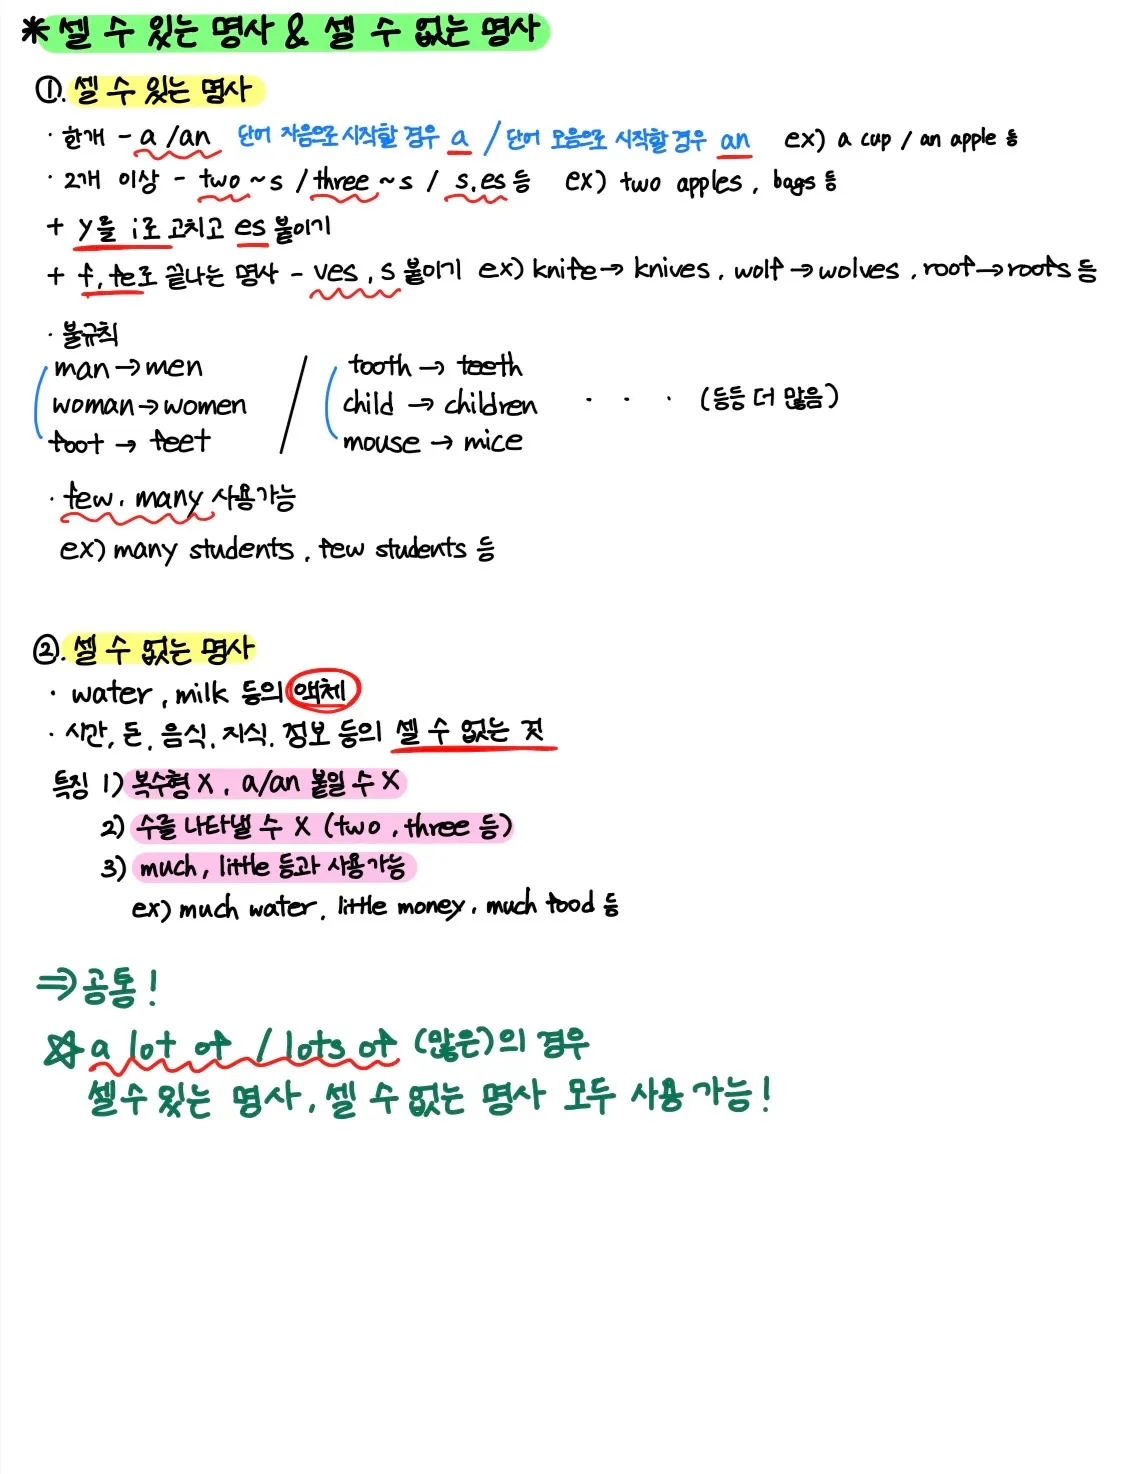 * 셀 수 있는 명사 & 셀 수 없는 명사
①. 셀 수 있는 명사
· 한개 - a /an 단어 자음으로 시작할 경우 a / 단어 모음으로 시작할 경우 an ex) a cup / an apple 등
· 2개 이상 - two ~s / three ~s / s, es 등 ex) two apples, bags 등
+ y를 i로 고치고 es 붙이기
+ f, fe로 끝나는 명사 - ves, s 붙이기 ex) knife → knives, wolf → wolves, roof → roofs 등
· 불규칙
man → men / tooth → teeth
woman → women child → children · · · (등등 더 많음)
foot → feet mouse → mice
· few, many 사용가능
ex) many students, few students 등
②. 셀 수 없는 명사
· water, milk 등의 액체
· 시간, 돈, 음식, 지식, 정보 등의 셀 수 없는 것
특징 1) 복수형 X, a/an 붙일 수 X
2) 수를 나타낼 수 X (two, three 등)
3) much, little 등과 사용가능
ex) much water, little money, much food 등
⇒ 공통!
☆ a lot of / lots of (많은)의 경우
셀 수 있는 명사, 셀 수 없는 명사 모두 사용 가능!